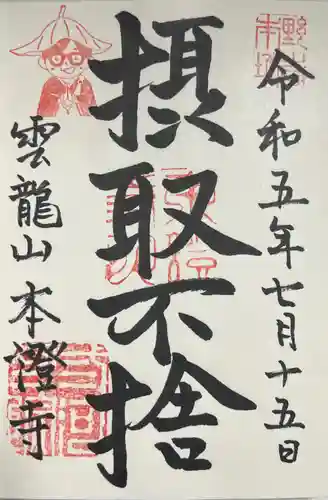 令和五年七月十五日
摂取不捨
雲龍山 本澄寺